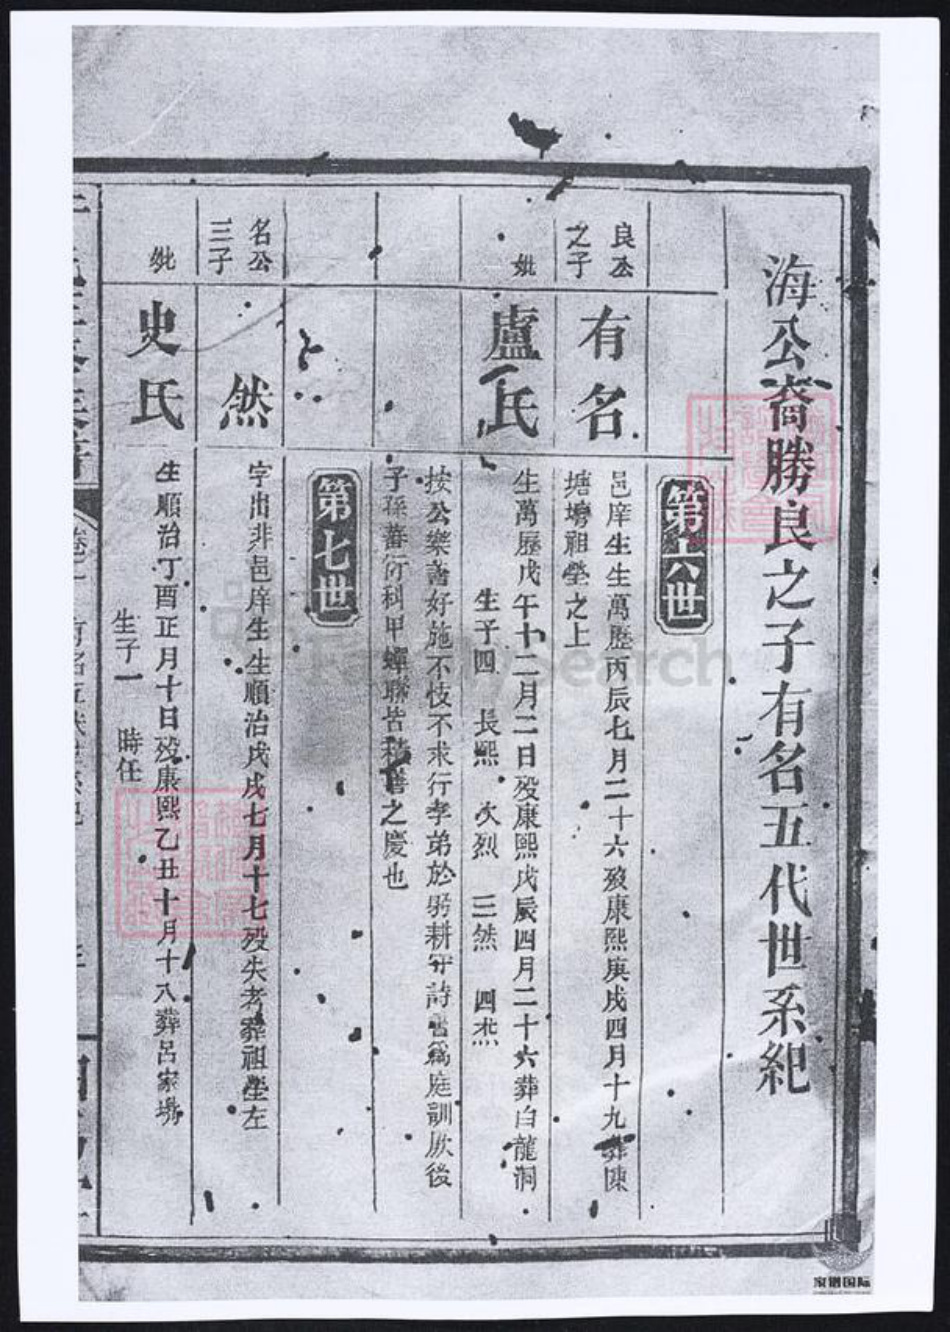 海公裔勝良之子有名五代世系紀
第十六世
良公之子
有名
邑庠生生萬歷丙辰七月二十六歿康熙庚戌四月十九葬陳
塘塆祖塋之上
妣
盧氏
生萬歷戊午十二月二日歿康熙戊辰四月二十六葬白龍洞
生子四 長熙 次烈 三然 四杰
按公樂善好施不忮不求行孝弟於躬耕守詩書爲庭訓厥後
子孫蕃衍科甲蟬聯皆積善之慶也
第七世
名公三子
然
字出非邑庠生生順治戊戌七月十七歿失考葬祖塋左
妣
史氏
生順治丁酉正月十日歿康熙乙丑十月十八葬呂家塆
生子一 時任
FamilySearch
家谱国际